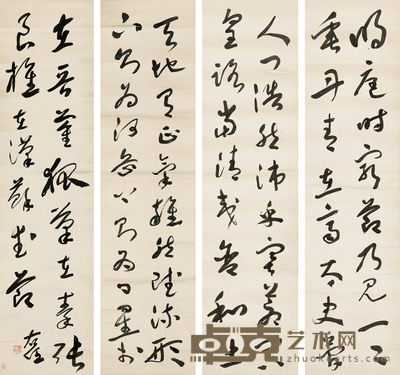 天地有正氣雜然賦流形
下則為河嶽上則為日星於
人曰浩然沛乎塞蒼冥
皇路當清夷含和吐
明庭時窮節乃見一一
垂丹青在齊太史簡
在晉董狐筆在秦張
良椎在漢蘇武節
右任
艺术网